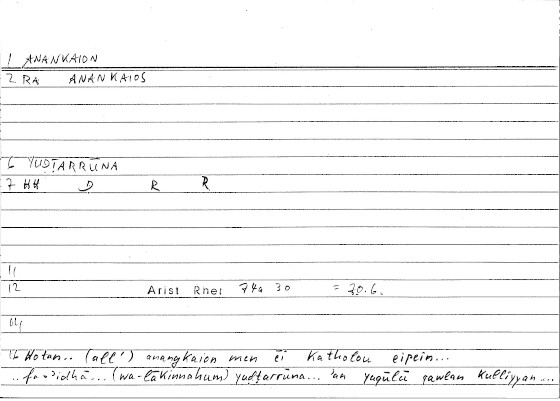 1 ANANKAION
2 RA ANANKAIOS
6 YUḌṬARRŪNA
7 HH D R R
11
12 Arist Rhet 74a 30 = 20.6.
14
16 Hotan.. (all') anangkaion men ēi katholou eipein...
..fa-'idhā...(wa-lākinnahum) yuḍṭarrūna... 'an yaqūlū qawlan kulliyyan...